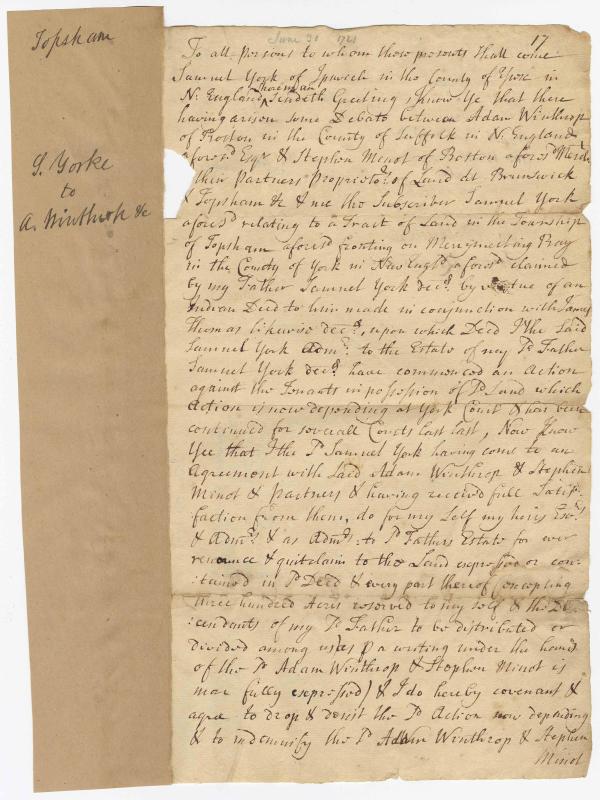 Topsham
S. Yorke
to
A. Winthrop &c
June 30 1721
17
To all persons to whom these presents shall come
Samuel York of Ipswich in the County of in
N. England Sendeth Greeting, Know Ye that there
having arisen some Debate between Adam Winthrop
of Boston in the County of Suffolk in N. England
afores.d Esq.r & Stephen Minot of Boston afores.d
their Partners Proprieto.rs of Land at Brunswick
& Topsham &c & me the Subscriber Samuel York
afores.d relating to a Tract of Land in the Township
of Topsham afores.d fronting on Merrymeeting Bay
in the County of York in New Engl.d afores.d claimed
by my Father Samuel York dec.d by vertue of an
Indian Deed to him made in conjunction with James
Thomas likewise dec.d, upon which Deed I the Said
Samuel York Adm.r to the Estate of my s.d Father
Samuel York dec.d have commenced an Action
against the Tenants in possession of s.d Land which
Action is now depending at York Court & has been
continued for severall Courts last past, Now Know
Yee that I the s.d Samuel York having come to an
Agreement with said Adam Winthrop & Stephen
Minot & Partners & having received full Satis-
faction from them, do for my Self my heirs Exe.rs
& Adm.rs & as Adm.r to s.d Fathers Estate for ever
renounce & quitclaim to the Land expressed or con-
tained in s.d Deed & every part thereof, excepting
three hundred Acres reserved to my self & the De-
cendants of my s.d Father to be distributed or
divided among us as p a writing under the hands
of the s.d Adam Winthrop & Stephen Minot is
more fully expressed) & I do hereby covenant &
agree to drop & desist the s.d Action now depending
& to indemnify the s.d Adam Winthrop & Stephen
Minot